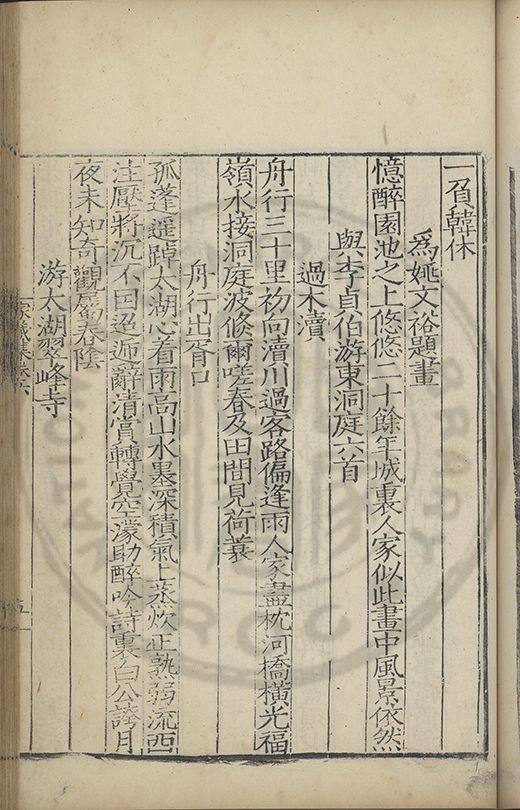 一負韓休
爲姚文裕題畫
憶醉園池之上悠悠二十餘年城裏人家似此畫中風景依然
與李貞伯游東洞庭六首
過木瀆
舟行三十里初向瀆川過客路偏逢雨人家盡枕河橋橫光福
嶺水接洞庭波倐爾嗟春及田間見荷蓑
舟行出胥口
孤蓬遥踔太湖心看雨高山水墨深積氣上蒸炊正熟弱流西
注壓將沉不因迢遞辭清賞轉覺空濛助醉吟詩裏白公誇月
夜未知奇觀屬春陰
游太湖翠峰寺